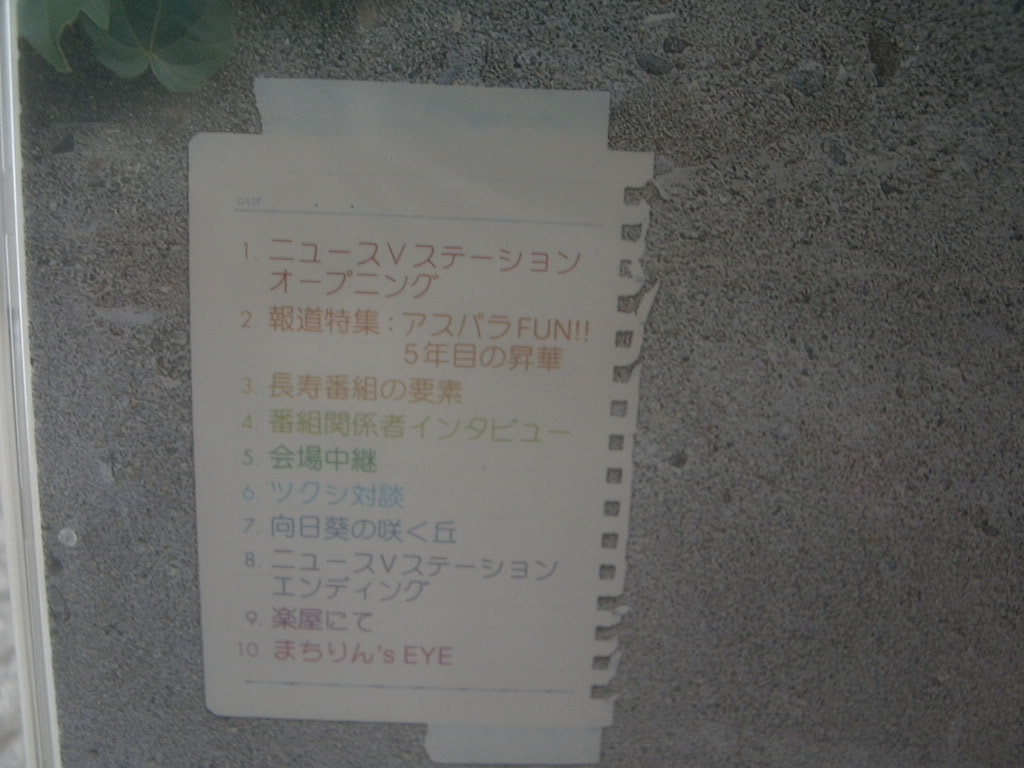 DATE
1. ニュースVステーション
オープニング
2. 報道特集：アスパラFUN!!
5年目の昇華
3. 長寿番組の要素
4. 番組関係者インタビュー
5. 会場中継
6. ツクシ対談
7. 向日葵の咲く丘
8. ニュースVステーション
エンディング
9. 楽屋にて
10. まちりん's EYE